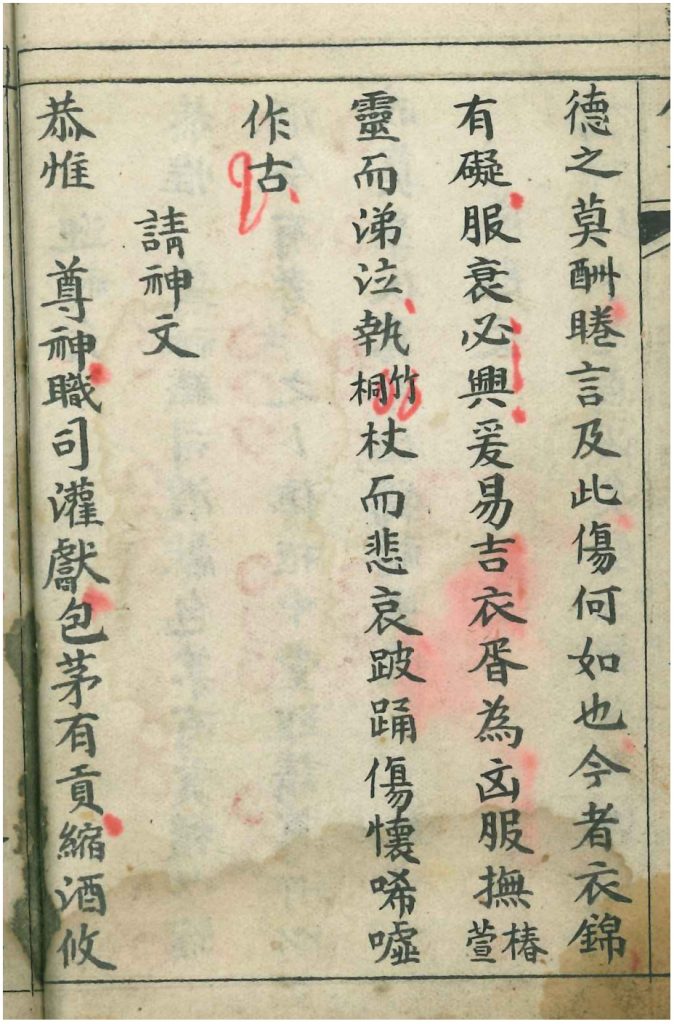 德之莫酬睠言及此傷何如也今者衣錦
有礙服衰必興爰易吉衣胥為凶服撫椿萱
靈而涕泣執竹桐杖而悲哀跛踊傷懷唏噓
作古
請神文
恭惟 尊神職司灌獻包茅有貢縮酒攸